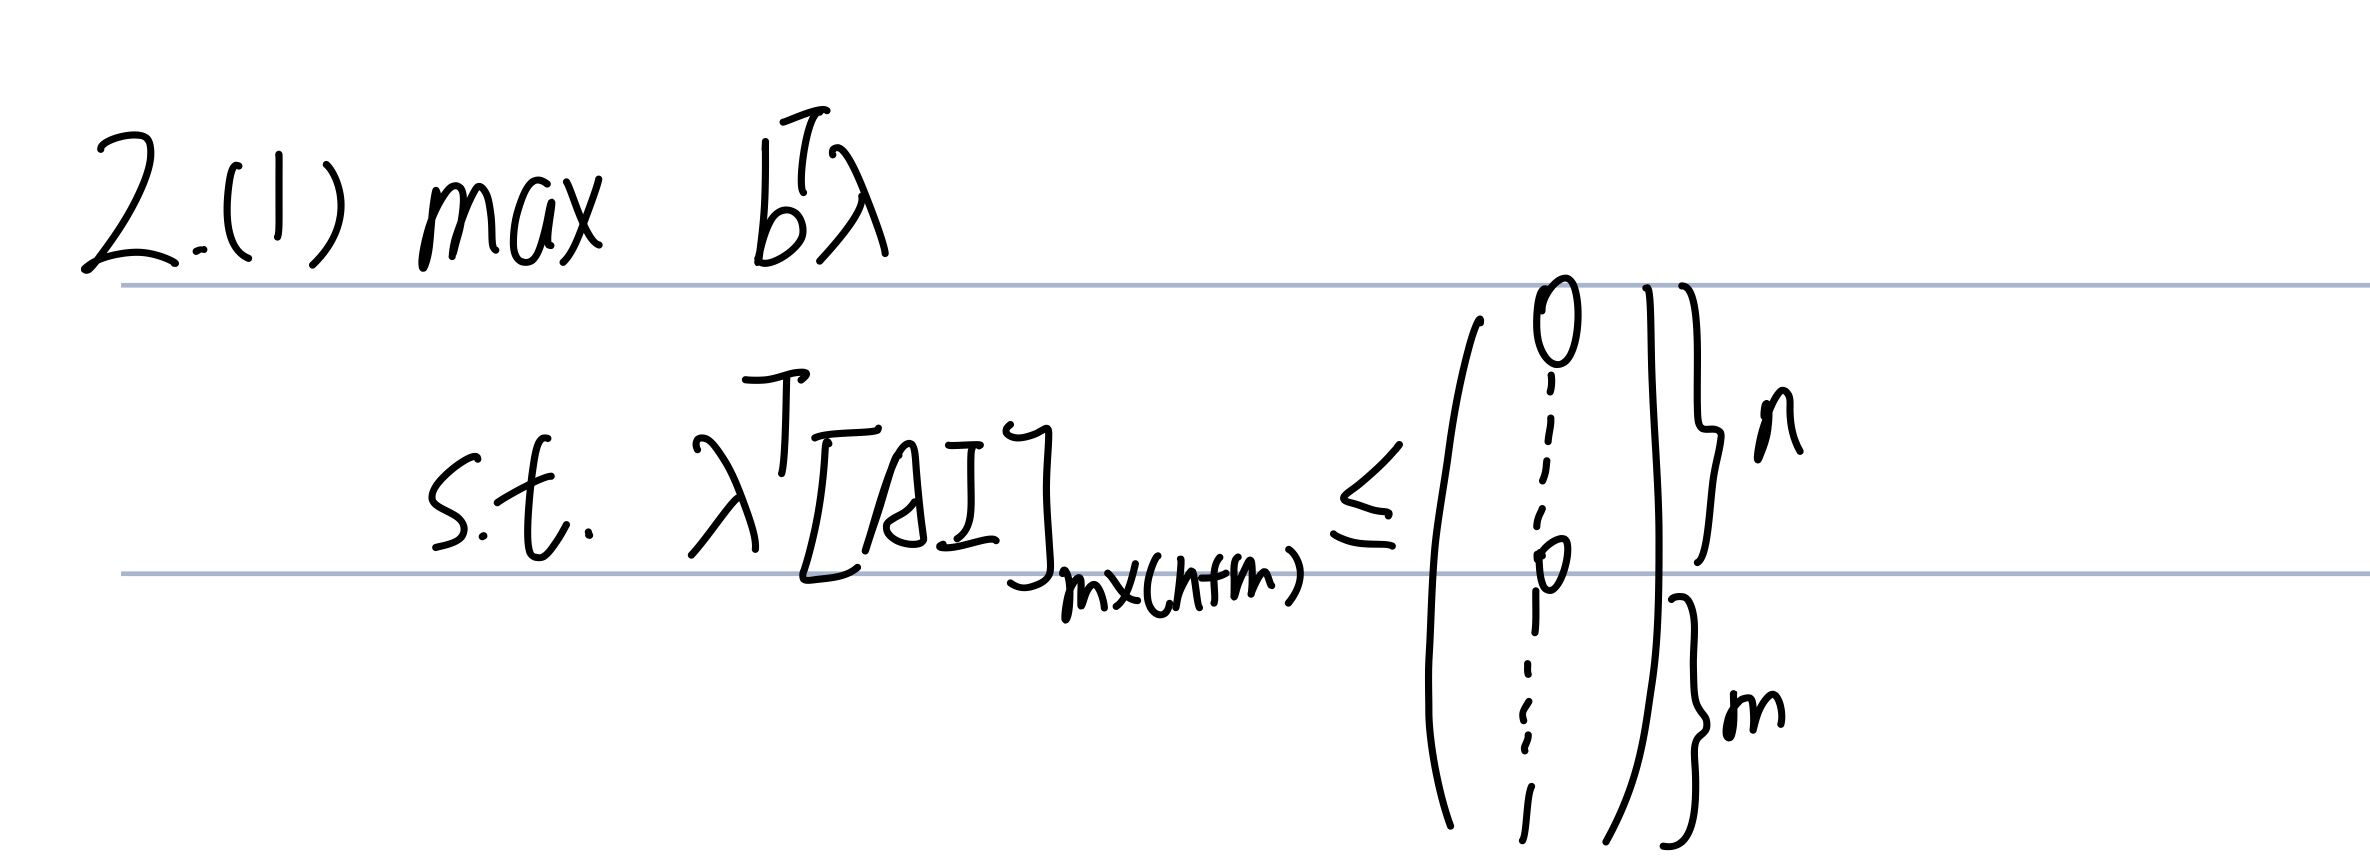 2.(1) max bᵀλ
s.t. λᵀ[A I]ₘₓ₍ₙ₊ₘ₎ ≤ (0 ⋮ 0 1 ⋮ 1) } n } m